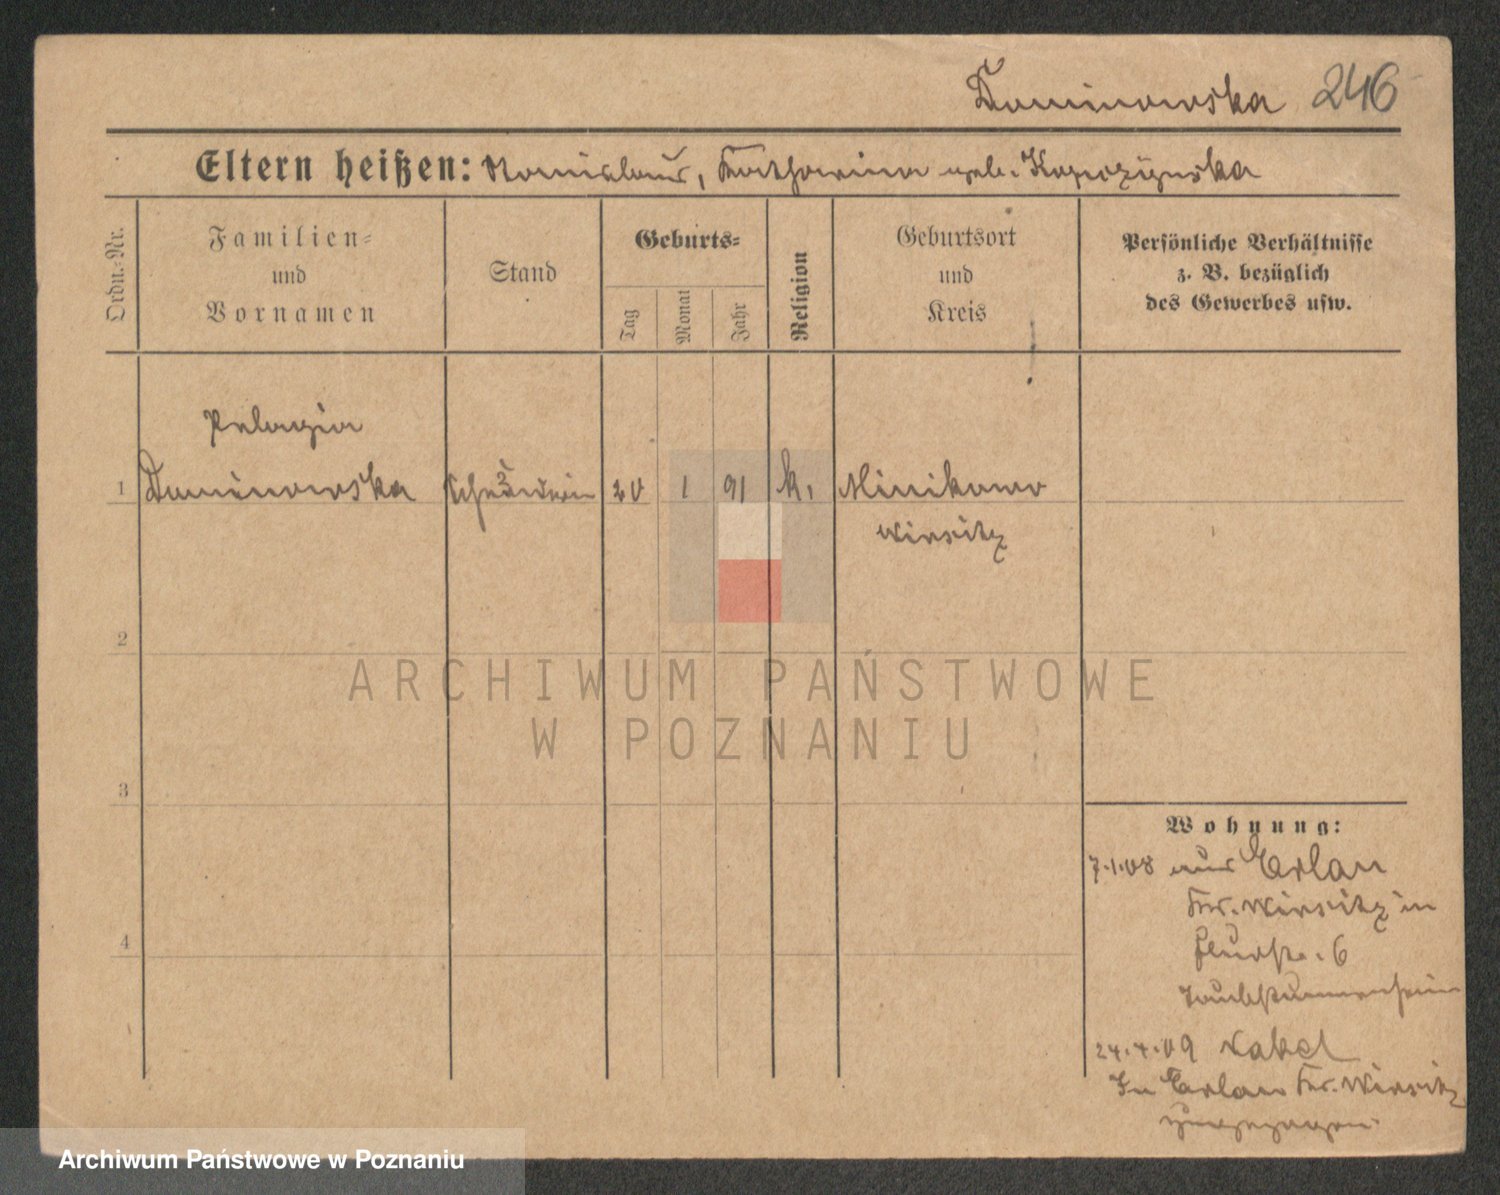 Dominowska 246
Eltern heißen: Stanislaus, Katharina geb.
Ordn.-Nr.
Familien-
und
Vornamen
Stand
Geburts-
Tag
Monat
Jahr
Religion
Geburtsort
und
Kreis
Persönliche Verhältnisse
z. B. bezüglich
des Gewerbes usw.
Pelagia
1 Dominowska Schülerin 20 1 91 k. Minikowo
Wirsitz
2
ARCHIWUM PAŃSTWOWE
W POZNANIU
3
4
Wohnung:
7.1.08 aus Erlau
Kr. Wirsitz in
Flurstr. 6
Taubstummenheim
24.4.09 Nakel
In Erlau Kr. Wirsitz
zugezogen
Archiwum Państwowe w Poznaniu